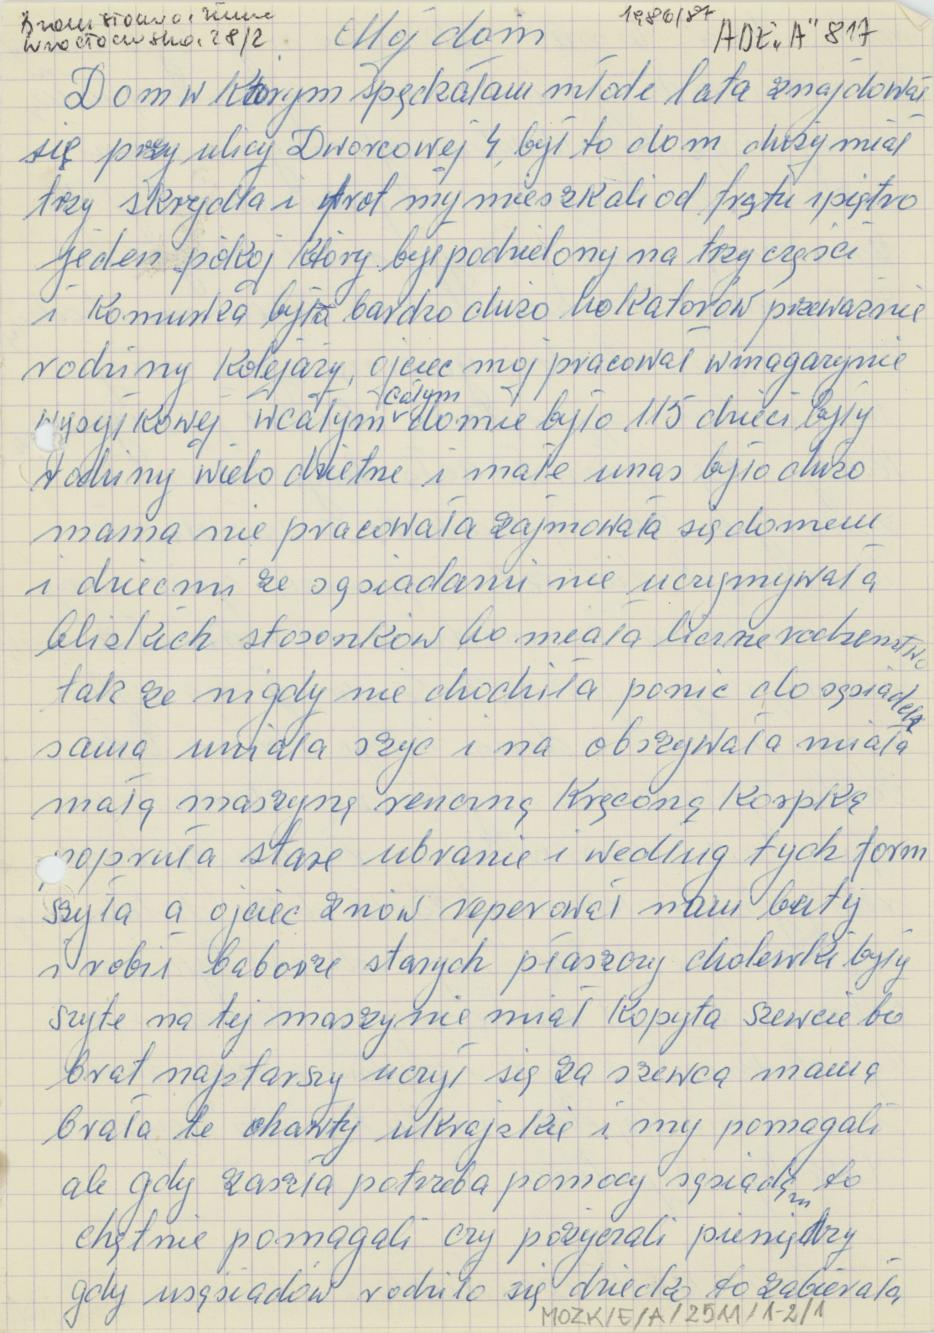 Bronisława Zimna 1986/87
Wrocławska 28/2 Mój dom ADE „A” 817
Dom w Którym spędzałam młode lata znajdował
się przy ulicy Dworcowej 4, był to dom duży miał
trzy skrzydła i frot my mieszkali od frątu i piętro
jeden pókoj Który był podzielony na trzy części
i Komurka była bardzo dużo lokatorów przeważnie
rodziny Kolejaży, ojciec moj pracował wmagazynie
wysyłkowej wcałym całym domie było 115 dzieci były
rodziny wielo dzietne i małe unas było dużo
mama nie pracowała zajmowała się domem
i dziecmi ze sąsiadami nie uczymywałą
bliskich stosonków bo miała liczne rodzenstwo
tak że nigdy nie chodziła ponic do sąsiadeką
sama umiała szyc i na obszywała miała
małą maszyną renczną Kręconą Korpką
popruła stare ubranie i według tych form
szyła a ojciec znów reperował nam buty
i robił baborze starych płaszczy cholewki były
szyte na tej maszynie miał Kopyta szewcie bo
brat najstarszy uczył się za szewca mamą
brała te chawty ukrajzkie i my pomagali
ale gdy zaszła potrzeba pomocy sąsiadzm to
chętnie pomagali czy pożyczali pieniędzy
gdy usąsiadów rodziło się dziecko to zabierałą
MOZK/E/A/2511/1-2/1